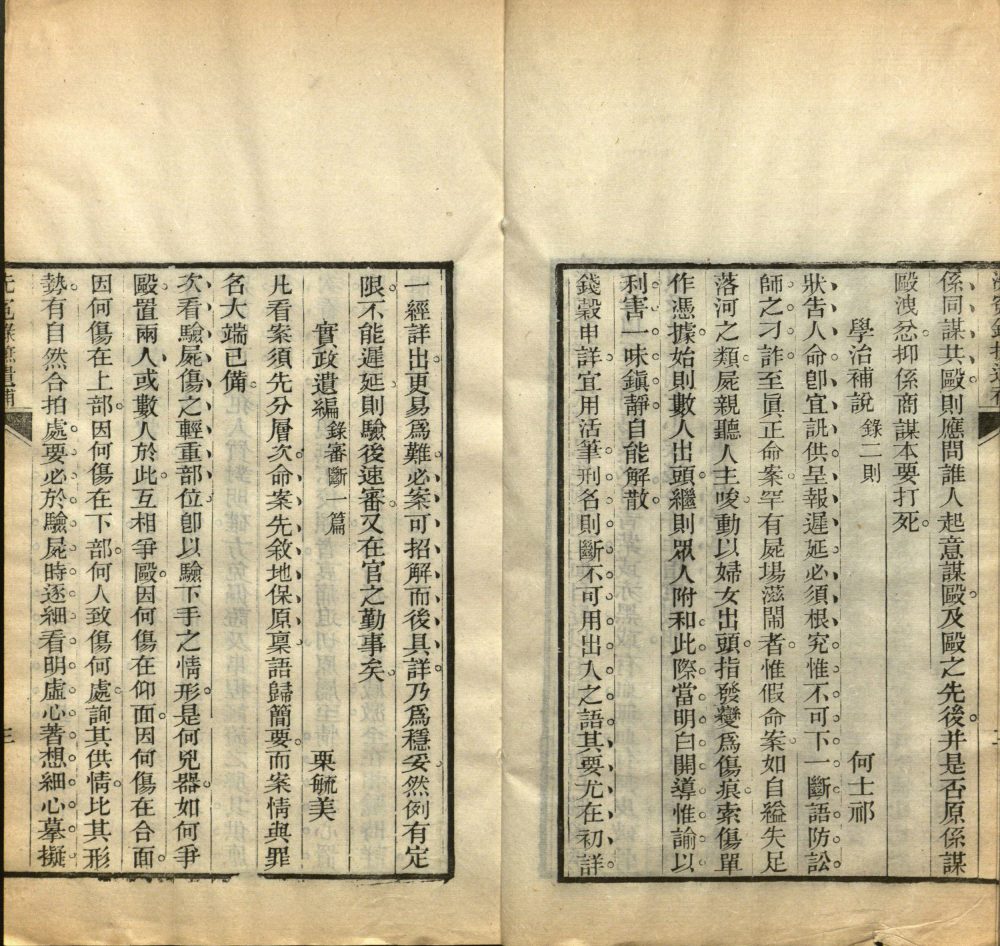 係同謀共毆則應問誰人起意謀毆及毆之先後并是否原係謀
毆洩忿抑係商謀本要打死
學治補說 錄二則 何士祁
狀告人命卽宜訊供呈報遲延必須根究惟不可下一斷語防訟
師之刁詐至眞正命案罕有屍場滋閙者惟假命案如自縊失足
落河之類屍親聽人主唆動以婦女出頭指發變爲傷痕索傷單
作憑據始則數人出頭繼則眾人附和此際當明白開導惟諭以
利害一味鎭靜自能解散
錢穀申詳宜用活筆刑名則斷不可用出入之語其要尤在初詳
一經詳出更易爲難必案可招解而後具詳乃爲穩妥然例有定
限不能遲延則驗後速審又在官之勤事矣
實政遺編 錄審斷一篇 栗毓美
凡看案須先分層次命案先敘地保原稟語歸簡要而案情與罪
名大端已備
次看驗屍傷之輕重部位卽以驗下手之情形是何兇器如何爭
毆置兩人或數人於此互相爭毆因何傷在仰面因何傷在合面
因何傷在上部因何傷在下部何人致傷何處詢其供情比其形
勢有自然合拍處要必於驗屍時逐細看明虛心著想細心摹擬
三